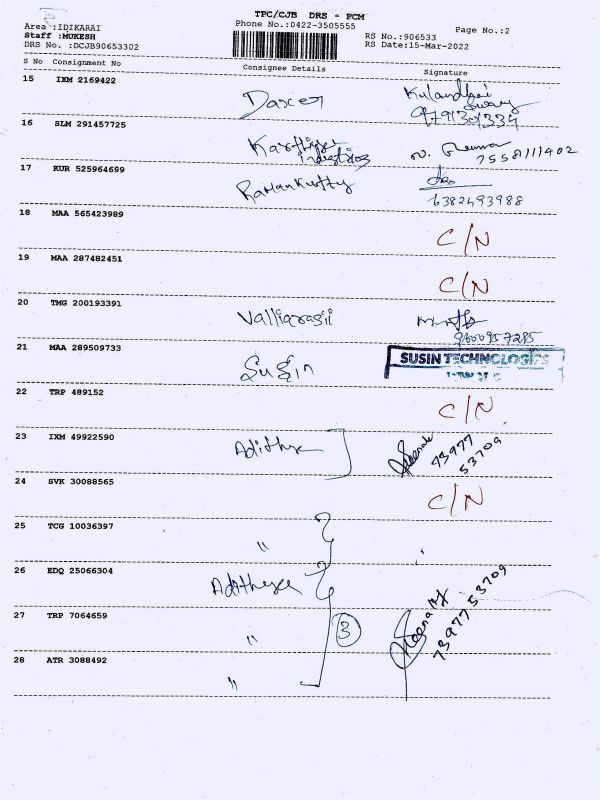 TPC/CJB DRS - PCM
Area :IDIKARAI
Phone No.:0422-3505555
Page No.:2
Staff :MUKESH
RS No.:906533
DRS No. :DCJB90653302
RS Date:15-Mar-2022
S No Consignment No Consignee Details Signature
15 IXM 2169422
16 SLM 291457725
7558111402
17 KUR 525964699 Ramankutty
6382493988
18 MAA 565423989 C/N
19 MAA 287482451 C/N
20 TMG 200193391 Valliarasii
21 MAA 289509733 Sugin SUSIN TECHNOLOGIES
22 TRP 489152 C/N
23 IXM 49922590 Adithya 73977
53709
24 SVK 30088565 C/N
25 TCG 10036397 "
26 EDQ 25066304 Adithya
27 TRP 7064659 " 3 Meena M 73977 53709
28 ATR 3088492 "